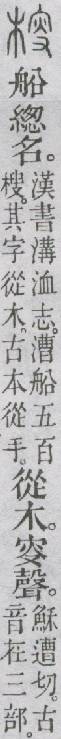 梭
船總名。
漢書溝洫志。漕船五百
梭。其字從木。古本從手。
從木。叜聲。
穌遭切。古
音在三部。